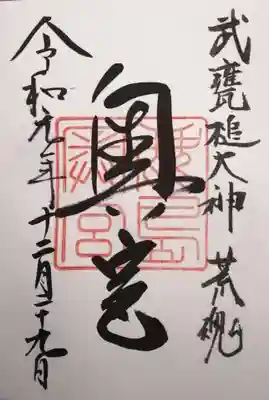 武甕槌大神 荒魂
奥宮
令和元年十二月二十九日